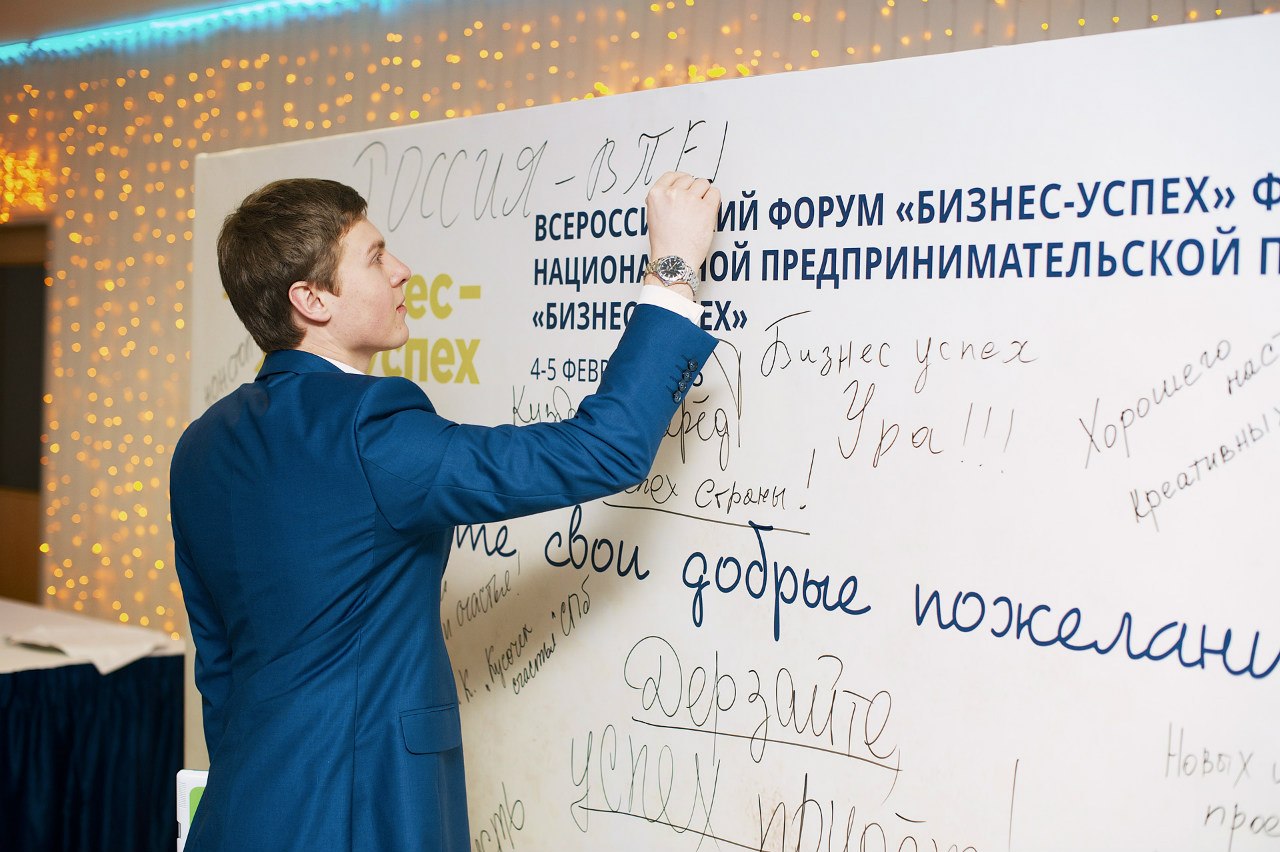 РОССИЯ - ВПЕ
ВСЕРОССИ ИЙ ФОРУМ «БИЗНЕС-УСПЕХ» Ф
НАЦИОНА НОЙ ПРЕДПРИНИМАТЕЛЬСКОЙ П
«БИЗНЕС ЕХ»
4-5 ФЕВР
ес-
успех
Бизнес успех
Ура!!!
Хорошего
наст
креативных
рёд
спех страны!
те свои добрые пожелани
и счастье!
К. "Кусочек
счастья" СПб
Дерзайте
успех придёт
Новых и
прое
сть